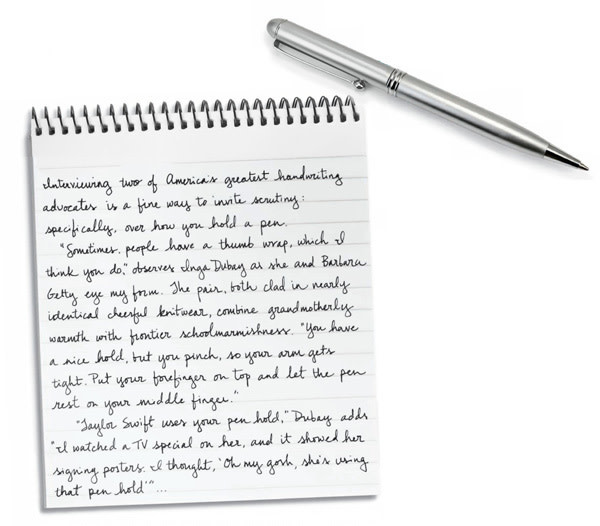 Interviewing two of America's greatest handwriting
advocates is a fine way to invite scrutiny:
specifically, over how you hold a pen.
"Sometimes, people have a thumb wrap, which I
think you do," observes Inga Dubay as she and Barbara
Getty eye my form. The pair, both clad in nearly
identical cheerful knitwear, combine grandmotherly
warmth with frontier schoolmarmishness. "You have
a nice hold, but you pinch, so your arm gets
tight. Put your forefinger on top and let the pen
rest on your middle finger."
"Taylor Swift uses your pen hold," Dubay adds
"I watched a TV special on her, and it showed her
signing posters. I thought, 'Oh my gosh, she's using
that pen hold'"...